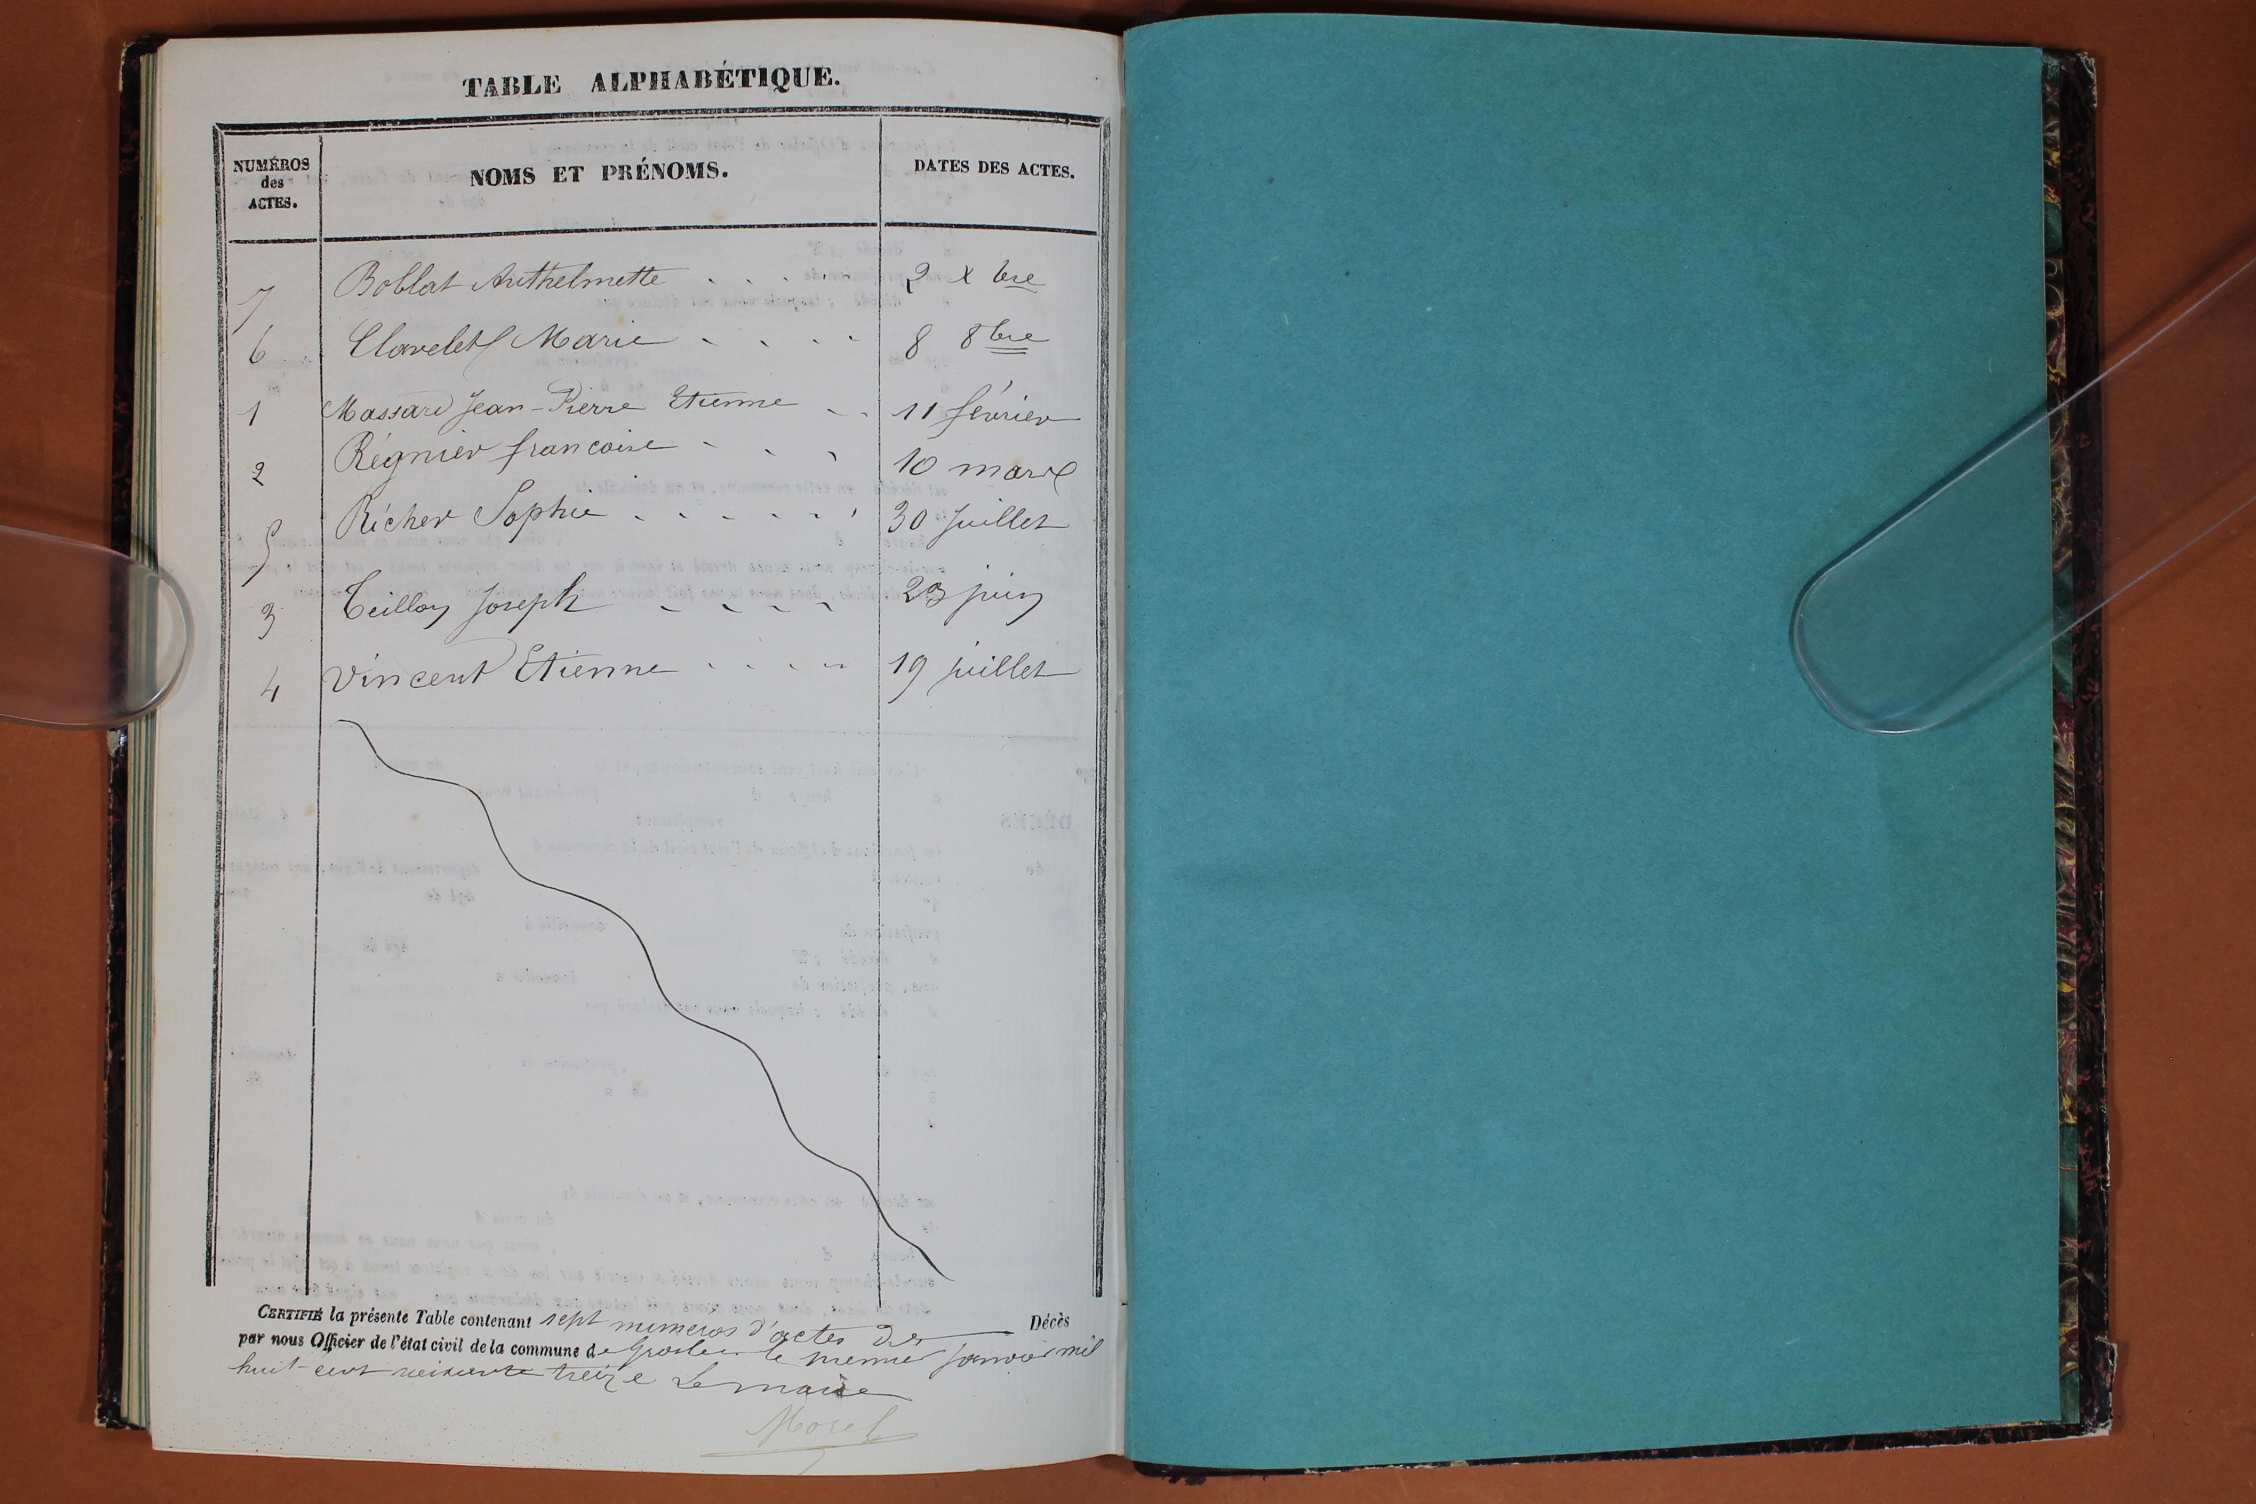 TABLE ALPHABÉTIQUE.
NUMÉROS des ACTES. NOMS ET PRÉNOMS. DATES DES ACTES.
7 Boblat Anthelmette . . . . 2 Xbre
6 Clavelet Marie . . . . 8 8bre
1 Massard Jean-Pierre Etienne . . 11 février
2 Régnier francoise . . . 10 mars
5 Richer Sophie . . . . . . 30 Juillet
3 Teillon Joseph . . . . 23 juin
4 Vincent Etienne . . . . 19 juillet
CERTIFIÉ la présente Table contenant sept numéros d'actes de Décès
par nous Officier de l'état civil de la commune de Groslée le premier Janvier mil
huit cent soixante treize Le maire
Morel